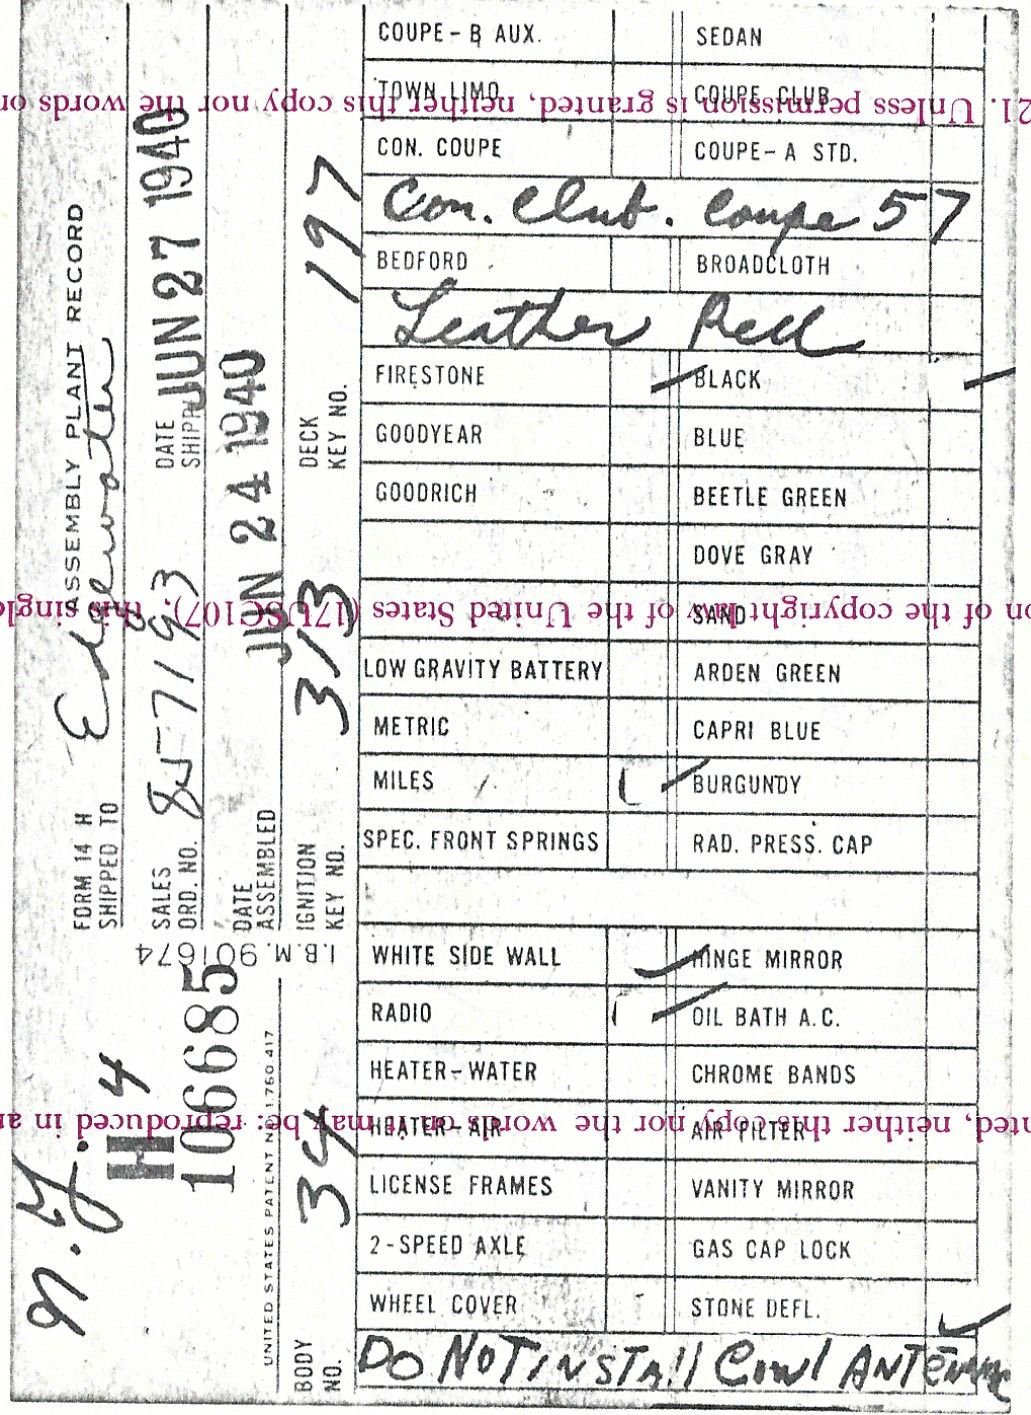 FORM 14 H ASSEMBLY PLANT RECORD
SHIPPED TO Edgewater
SALES ORD. NO. 85-7193
DATE SHIPP JUN 27 1940
DATE ASSEMBLED JUN 24 1940
IGNITION KEY NO. 313
DECK KEY NO. 197
I.B.M. 901674
N.Y. 4
H
106685
UNITED STATES PATENT No. 1 760 417
BODY NO. 34
COUPE-B AUX. SEDAN
TOWN LIMO. COUPE CLUB
CON. COUPE COUPE-A STD.
Con. Club. Coupe 57
BEDFORD BROADCLOTH
Leather Red
FIRESTONE BLACK
GOODYEAR BLUE
GOODRICH BEETLE GREEN
DOVE GRAY
SAND
LOW GRAVITY BATTERY ARDEN GREEN
METRIC CAPRI BLUE
MILES BURGUNDY
SPEC. FRONT SPRINGS RAD. PRESS. CAP
WHITE SIDE WALL HINGE MIRROR
RADIO OIL BATH A.C.
HEATER-WATER CHROME BANDS
HEATER-AIR AIR FILTER
LICENSE FRAMES VANITY MIRROR
2-SPEED AXLE GAS CAP LOCK
WHEEL COVER STONE DEFL.
DO NOT INSTALL COWL ANTENNA
nted, neither this copy nor the words on it may be: reproduced in a
on of the copyright law of the United States (17USC107). this single
21. Unless permission is granted, neither this copy nor the words on